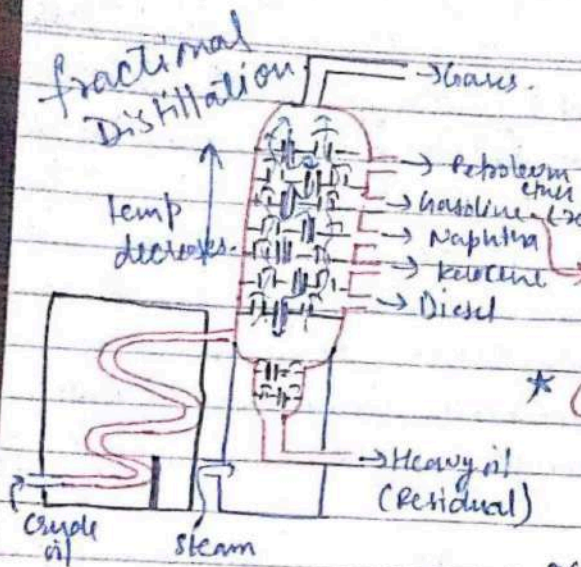 fractional
Distillation
→ Gases.
temp
decreases.
→ Petroleum
ether
→ Gasoline
→ Naphtha
→ Kerocene
→ Diesel
→ Heavy oil
(Residual)
Crude
oil
Steam